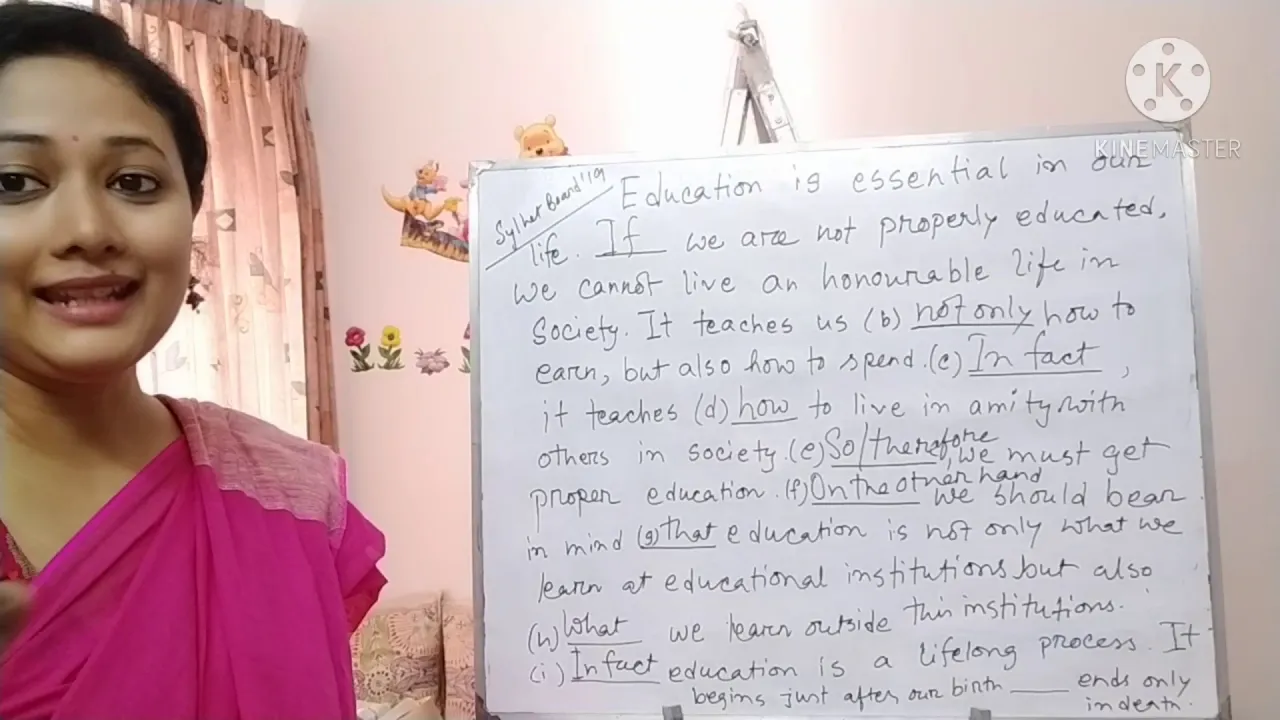 KINEMASTER
Sylhet Board'19
Education is essential in our
life. If we are not properly educated,
we cannot live an honourable life in
society. It teaches us (b) not only how to
earn, but also how to spend. (c) In fact,
it teaches (d) how to live in amity with
others in society. (e) So/therefore, we must get
proper education. (f) On the other hand we should bear
in mind (g) that education is not only what we
learn at educational institutions but also
(h) What we learn outside this institutions.
(i) In fact education is a lifelong process. It
begins just after our birth ____ ends only
in death.